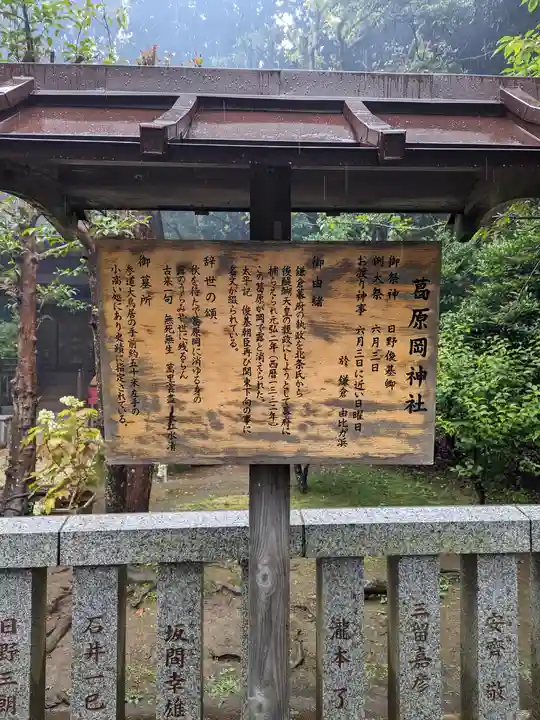 葛原岡神社
御祭神　日野俊基卿
例大祭　六月三日
お渡り神事　六月三日に近い日曜日
於 鎌倉 由比ガ浜
御由緒
鎌倉幕府の執政を北条氏から
後醍醐天皇の親政にしようとして幕府に
捕らえられ元弘二年（西暦一三三二年）
この葛原が岡で露と消えてられた。
太平記　俊基朝臣再び関東下向の事に
名文が綴られている。
辞世の頌
秋を待たで葛原岡に消ゆる身の
露のうらみや世に残るらん
古来一句　無死無生　萬里雲尽　長江水清
御墓所
参道大鳥居の手前約五十米左手の
小高い処にあり史蹟に指定されている。
安齊 敬
三留嘉彦
瀧本 了
坂間幸雄
石井一巳
日野三朗